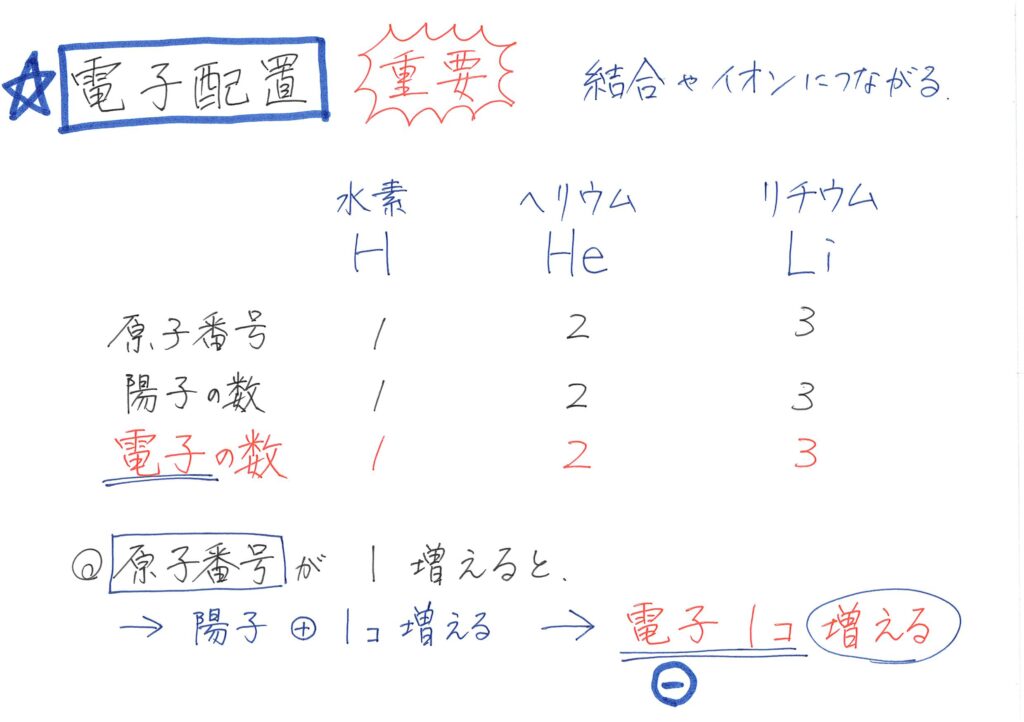 ☆ 電子配置 重要 結合やイオンにつながる.
水素 ヘリウム リチウム
H He Li
原子番号 1 2 3
陽子の数 1 2 3
電子の数 1 2 3
◎ 原子番号が 1 増えると.
→ 陽子 ⊕ 1コ 増える → 電子 1コ 増える
⊖